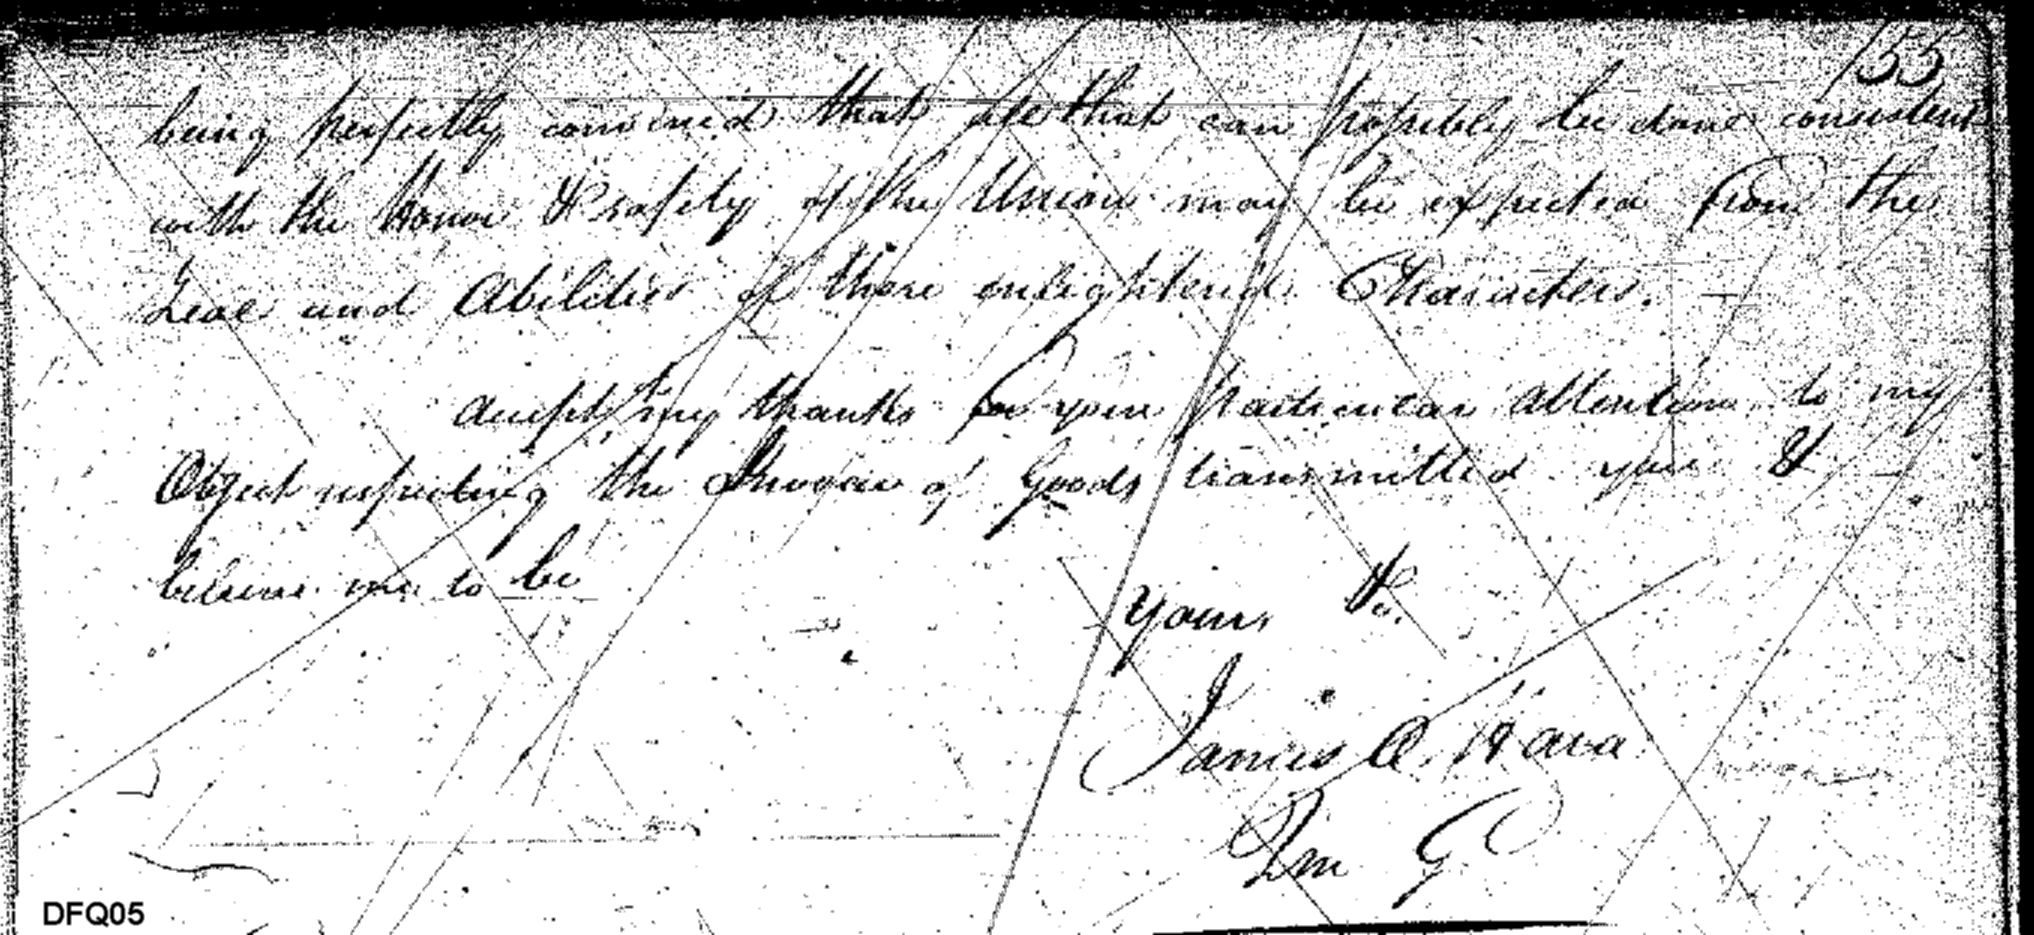 155
being perfectly convinced that all that can possibly be done consistent
with the Honor & safety of the Union may be expected from the
Zeal and Abilities of those enlightened Characters.
Accept my thanks for your particular attention to my
Object respecting the Invoice of Goods transmitted you &
believe me to be
Yours &c.
James O'Hara
Qm G
DFQ05